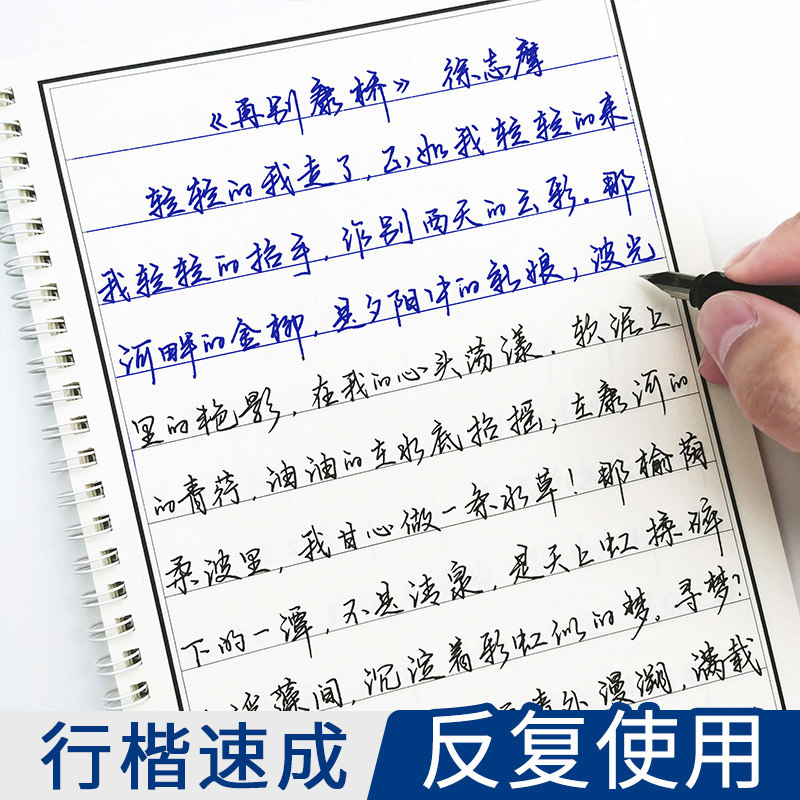 《再别康桥》 徐志摩
轻轻的我走了,正如我轻轻的来
我轻轻的招手,作别西天的云彩。那
河畔的金柳,是夕阳中的新娘;波光
里的艳影,在我的心头荡漾。软泥上
的青荇,油油的在水底招摇;在康河的
柔波里,我甘心做一条水草!那榆荫
下的一潭,不是清泉,是天上虹揉碎
浮藻间,沉淀着彩虹似的梦。寻梦?
漫溯,满载
行楷速成 反复使用